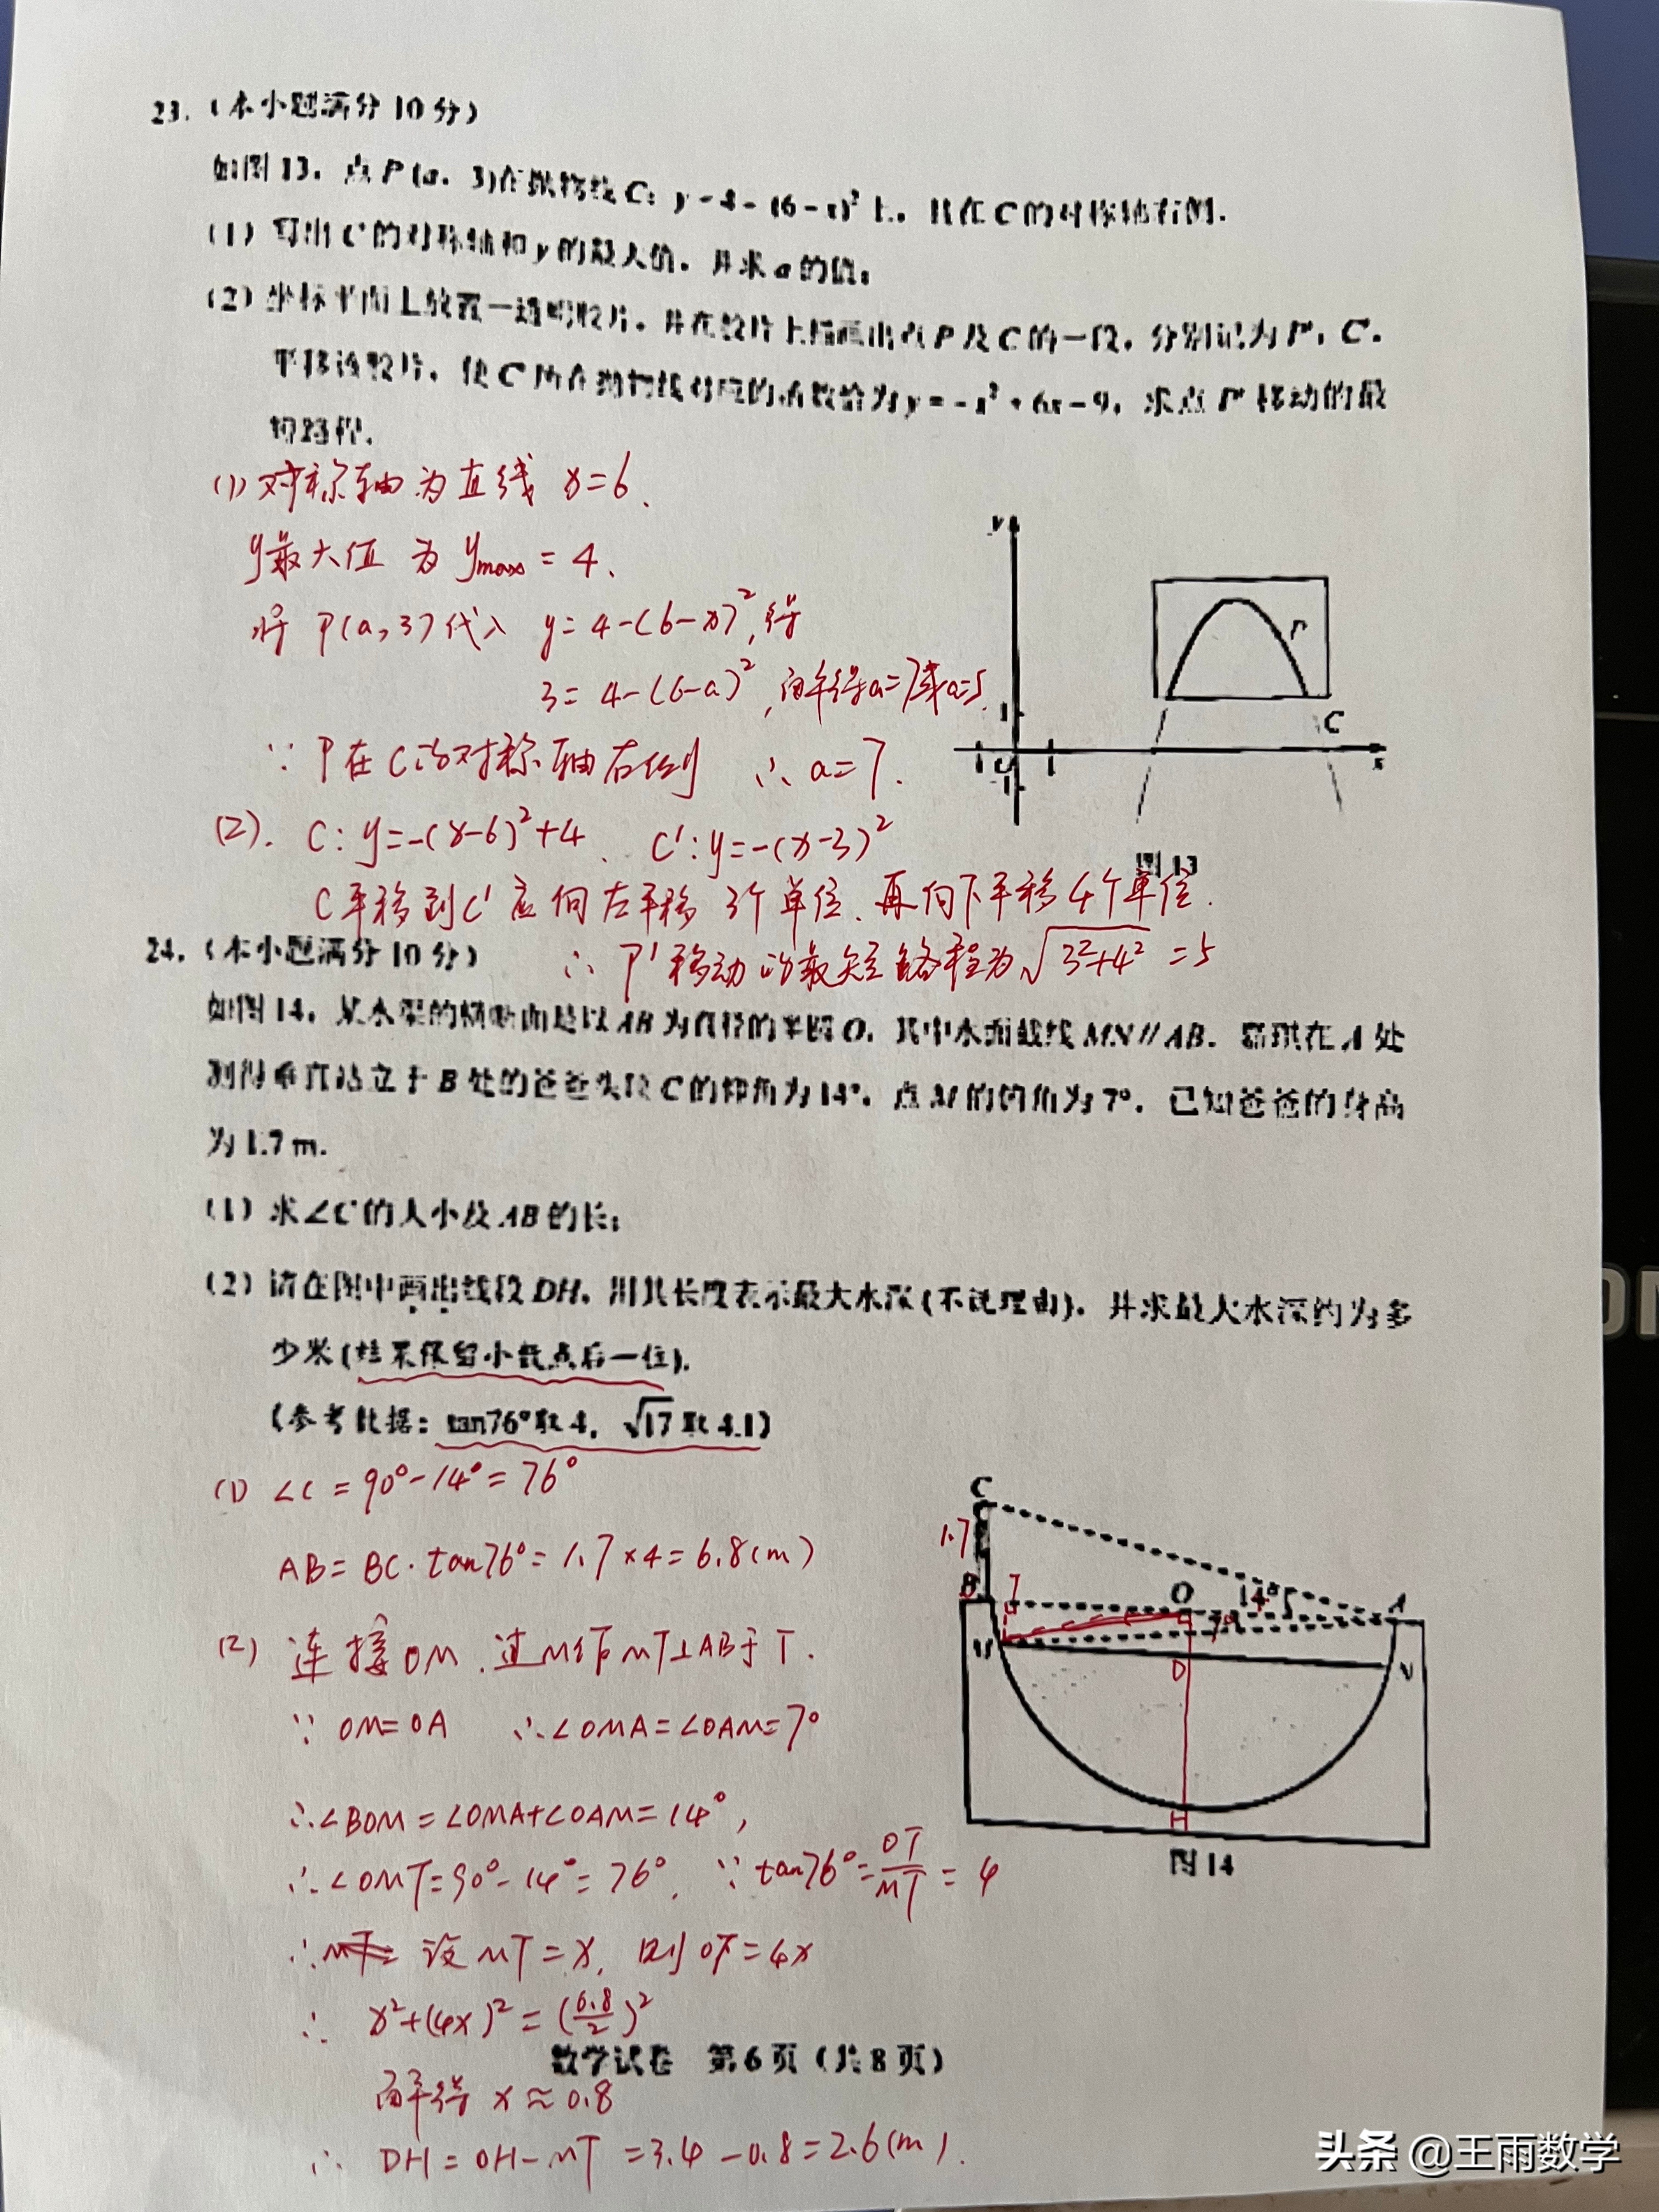 23.（本小题满分10分）
如图13，点P(a，3)在抛物线C：y=4-(6-x)²上，且在C的对称轴右侧．
（1）写出C的对称轴和y的最大值，并求a的值；
（2）坐标平面上放置一透明胶片，并在胶片上描画出点P及C的一段，分别记为P′，C′．
平移该胶片，使C′所在抛物线对应的函数恰为y=-x²+6x-9，求点P′移动的最
短路程．
(1) 对称轴为直线 x=6．
y最大值 为 ymax=4．
将 P(a,3)代入 y=4-(6-x)²,得
3=4-(6-a)²,解得a=7或a=5．
∵ P在C的对称轴右侧 ∴ a=7．
(2)． C：y=-(x-6)²+4． C′：y=-(x-3)²
C平移到C′应向左平移3个单位．再向下平移4个单位．
∴ P′移动的最短路程为√(3²+4²)=5
y
P′
1
C
-1 O 1 x
-1
图13
24.（本小题满分10分）
如图14，某水渠的横断面是以AB为直径的半圆O，其中水面截线MN∥AB．嘉琪在A处
测得垂直站立于B处的爸爸头顶C的仰角为14°，点M的俯角为7°．已知爸爸的身高
为1.7 m．
（1）求∠C的大小及AB的长；
（2）请在图中画出线段DH，用其长度表示最大水深(不说理由)，并求最大水深约为多
少米(结果保留小数点后一位)．
（参考数据：tan76°取4，√17取4.1）
(1) ∠C=90°-14°=76°
AB=BC·tan76°=1.7×4=6.8(m)
(2) 连接OM．过M作MT⊥AB于T．
∵ OM=OA ∴∠OMA=∠OAM=7°
∴∠BOM=∠OMA+∠OAM=14°,
∴∠OMT=90°-14°=76°． ∵tan76°=OT/MT=4
∴ 设MT=x, 则OT=4x
∴ x²+(4x)²=(6.8/2)²
解得 x≈0.8
∴ DH=OH-MT=3.4-0.8=2.6(m)．
C
1.7
B T O 14° A
7°
M D N
H
图14
数学试卷 第6页（共8页）
头条 @王雨数学